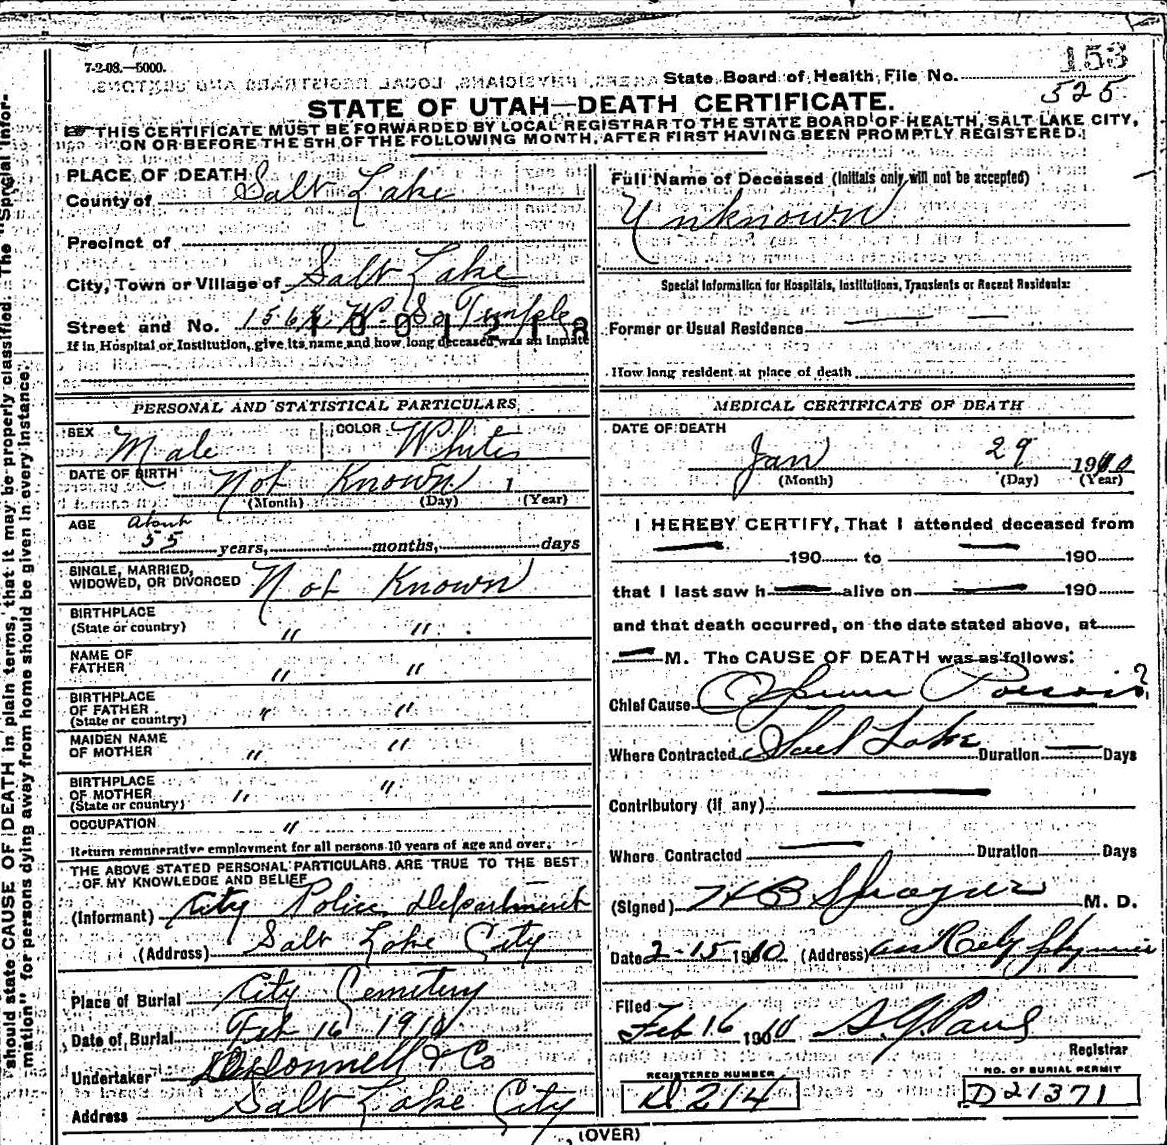 7-2-08.—5000.
State Board of Health, File No. 153
525
STATE OF UTAH—DEATH CERTIFICATE.
THIS CERTIFICATE MUST BE FORWARDED BY LOCAL REGISTRAR TO THE STATE BOARD OF HEALTH, SALT LAKE CITY,
ON OR BEFORE THE 5TH OF THE FOLLOWING MONTH, AFTER FIRST HAVING BEEN PROMPTLY REGISTERED.
PLACE OF DEATH
County of Salt Lake
Precinct of
City, Town or Village of Salt Lake
Street and No. 156½ W. So Temple
1001218
If in Hospital or Institution, give its name and how long deceased was an inmate
PERSONAL AND STATISTICAL PARTICULARS
SEX Male COLOR White
DATE OF BIRTH Not Known 1
(Month) (Day) (Year)
AGE about
55 years, months, days
SINGLE, MARRIED,
WIDOWED, OR DIVORCED Not Known
BIRTHPLACE
(State or country) " "
NAME OF
FATHER " "
BIRTHPLACE
OF FATHER
(State or country) " "
MAIDEN NAME
OF MOTHER " "
BIRTHPLACE
OF MOTHER
(State or country) " "
OCCUPATION "
Return remunerative employment for all persons 10 years of age and over.
THE ABOVE STATED PERSONAL PARTICULARS ARE TRUE TO THE BEST
OF MY KNOWLEDGE AND BELIEF
(Informant) City Police Department
(Address) Salt Lake City
Place of Burial City Cemetery
Date of Burial Feb 16 1910
Undertaker O'Donnell & Co
Address Salt Lake City
Full Name of Deceased (Initials only will not be accepted)
Unknown
Special Information for Hospitals, Institutions, Transients or Recent Residents:
Former or Usual Residence
How long resident at place of death
MEDICAL CERTIFICATE OF DEATH
DATE OF DEATH
Jan 29 1910
(Month) (Day) (Year)
I HEREBY CERTIFY, That I attended deceased from
190 to 190
that I last saw h alive on 190
and that death occurred, on the date stated above, at
M. The CAUSE OF DEATH was as follows:
Chief Cause Opium Poison?
Where Contracted Salt Lake Duration Days
Contributory (if any)
Where Contracted Duration Days
(Signed) H B Sprague M. D.
Date 2-15 1910 (Address)
Filed
Feb 16 1910 S G Paul
Registrar
REGISTERED NUMBER
D 214
NO. OF BURIAL PERMIT
D 21371
(OVER)
should state CAUSE OF DEATH in plain terms, that it may be properly classified. The "Special Infor-
mation" for persons dying away from home should be given in every instance.